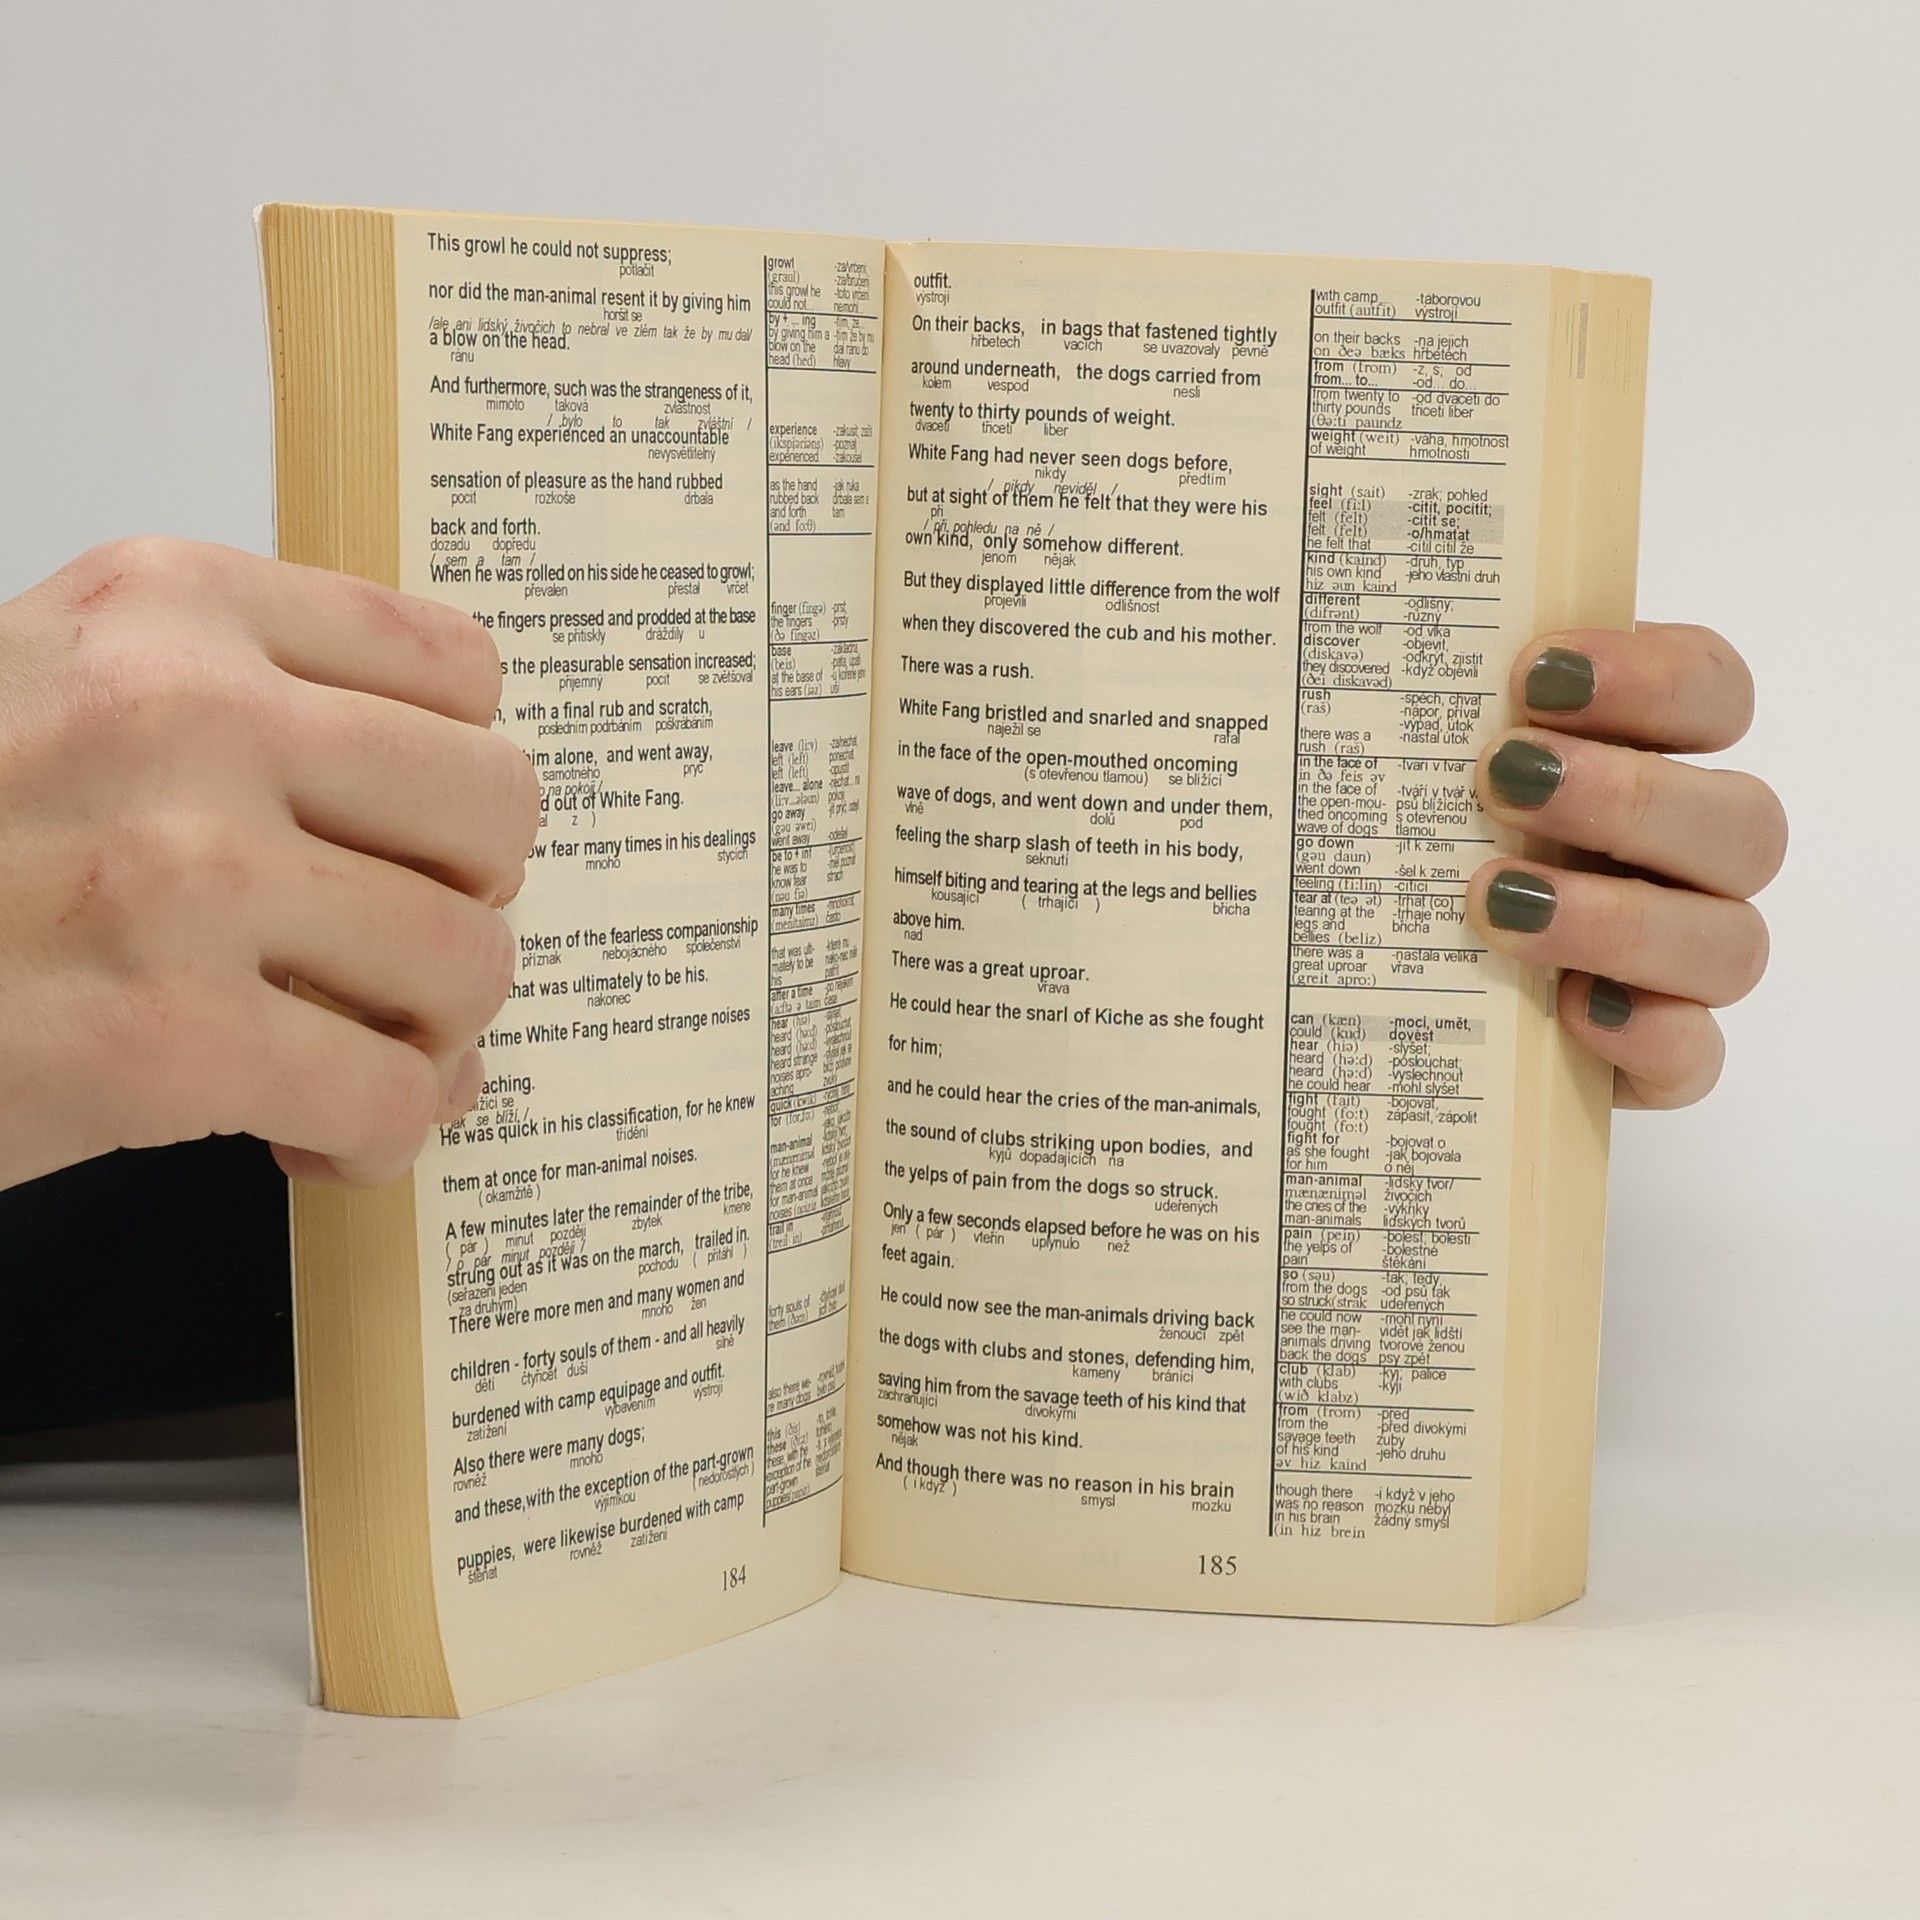 This growl he could not suppress;
potlačit
nor did the man-animal resent it by giving him
horšit se
/ale ani lidský živočich to nebral ve zlém tak že by mu dal/
a blow on the head.
ránu
And furthermore, such was the strangeness of it,
mimoto taková zvláštnost
/ bylo to tak zvláštní /
White Fang experienced an unaccountable
nevysvětlitelný
sensation of pleasure as the hand rubbed
pocit rozkoše drbala
back and forth.
dozadu dopředu
/ sem a tam /
When he was rolled on his side he ceased to growl;
převalen přestal vrčet
the fingers pressed and prodded at the base
se přitiskly dráždily u
the pleasurable sensation increased;
příjemný pocit se zvětšoval
with a final rub and scratch,
posledním podrbáním poškrábáním
him alone, and went away,
samotného pryč
na pokoji /
out of White Fang.
z )
fear many times in his dealings
mnoho stycích
token of the fearless companionship
příznak nebojácného společenství
that was ultimately to be his.
nakonec
a time White Fang heard strange noises
aching.
se
jak se blíží, /
He was quick in his classification, for he knew
třídění
them at once for man-animal noises.
( okamžitě )
A few minutes later the remainder of the tribe,
( pár ) minut později zbytek kmene
/ o pár minut později /
strung out as it was on the march, trailed in.
(seřazeni jeden pochodu ( přitáhl )
za druhým)
There were more men and many women and
mnoho žen
children - forty souls of them - and all heavily
děti čtyřicet duší silně
burdened with camp equipage and outfit.
zatíženi vybavením výstrojí
Also there were many dogs;
rovněž mnoho
and these,with the exception of the part-grown
výjimkou ( nedorostlých )
puppies, were likewise burdened with camp
štěňat rovněž zatíženi
184
growl -za/vrčení,
(graul) -za/bručení
this growl he -toto vrčení
could not... nemohl...
by + ... ing -tím, že...
by giving him a -tím že by mu
blow on the dal ránu do
head (hed) hlavy
experience -zakusit, zažít
(ikspiəriəns) -poznat
experienced -zakoušel
as the hand -jak ruka
rubbed back drbala sem a
and forth tam
(ənd fo:θ)
finger (fingə) -prst
the fingers -prsty
(ðə fingəz)
base -základna,
(beis) -pata, úpatí
at the base of
his ears (iəz) uší
leave (li:v) -zanechat,
left (left) ponechat
left (left) -opustit
leave... alone -nechat... na
(li:v...əloun) pokoji
go away
(gəu əwei)
went away -odešel
be to + inf
he was to
know fear strach
many times -mnohokrát
často
that was ulti-
mately to be
his patřit
after a time
hear (hiə) -slyšet
heard (hə:d)
heard (hə:d)
heard strange
noises apro-
aching zvuky
quick (kwik)
man-animal
for he knew
them at once
for man-animal
trail in
(treil in)
forty souls of
them (ðəm)
also there we-
re many dogs
this (ðis)
these (ði:z)
these, with the
exception of the
part-grown
puppies
outfit.
výstrojí
On their backs, in bags that fastened tightly
hřbetech vacích se uvazovaly pevně
around underneath, the dogs carried from
kolem vespod nesli
twenty to thirty pounds of weight.
dvaceti třiceti liber
White Fang had never seen dogs before,
nikdy předtím
/ nikdy neviděl /
but at sight of them he felt that they were his
při
/ při pohledu na ně /
own kind, only somehow different.
jenom nějak
But they displayed little difference from the wolf
projevili odlišnost
when they discovered the cub and his mother.
There was a rush.
White Fang bristled and snarled and snapped
naježil se rafal
in the face of the open-mouthed oncoming
(s otevřenou tlamou) se blížící
wave of dogs, and went down and under them,
vlně dolů pod
feeling the sharp slash of teeth in his body,
seknutí
himself biting and tearing at the legs and bellies
kousající ( trhající ) břicha
above him.
nad
There was a great uproar.
vřava
He could hear the snarl of Kiche as she fought
for him;
and he could hear the cries of the man-animals,
the sound of clubs striking upon bodies, and
kyjů dopadajících na
the yelps of pain from the dogs so struck.
udeřených
Only a few seconds elapsed before he was on his
jen ( pár ) vteřin uplynulo než
feet again.
He could now see the man-animals driving back
ženoucí zpět
the dogs with clubs and stones, defending him,
kameny bránící
saving him from the savage teeth of his kind that
zachraňující divokými
somehow was not his kind.
nějak
And though there was no reason in his brain
( i když ) smysl mozku
185
with camp -táborovou
outfit (autfit) výstrojí
on their backs -na jejich
on ðeə bæks hřbetech
from (from) -z, s; od
from... to... -od... do...
from twenty to -od dvaceti do
thirty pounds třiceti liber
(θə:ti paundz
weight (weit) -váha, hmotnost
of weight hmotnosti
sight (sait) -zrak; pohled
feel (fi:l) -cítit, pocítit;
felt (felt) -cítit se;
felt (felt) -o/hmatat
he felt that -cítil cítil že
kind (kaind) -druh, typ
his own kind -jeho vlastní druh
hiz əun kaind
different -odlišný;
(difrənt) -různý
from the wolf -od vlka
discover -objevit,
(diskavə) -odkrýt, zjistit
they discovered -když objevili
(ðei diskavəd)
rush -spěch, chvat
(raš) -nápor, příval
-výpad, útok
there was a -nastal útok
rush (raš)
in the face of -tváří v tvář
in ðə feis əv
in the face of -tváří v tvář v
the open-mou- psů blížících s
thed oncoming s otevřenou
wave of dogs tlamou
go down -jít k zemi
(gəu daun)
went down -šel k zemi
feeling (fi:lin) -cítící
tear at (teə ət) -trhat (co)
tearing at the -trhaje nohy
legs and břicha
bellies (beliz)
there was a -nastala veliká
great uproar vřava
(greit apro:)
can (kæn) -moci, umět,
could (kud) dovést
hear (hiə) -slyšet;
heard (hə:d) -poslouchat;
heard (hə:d) -vyslechnout
he could hear -mohl slyšet
fight (fait) -bojovat,
fought (fo:t) zápasit, -zápolit
fought (fo:t)
fight for -bojovat o
as she fought -jak bojovala
for him o něj
man-animal -lidský tvor/
mænæniməl živočich
the cries of the -výkřiky
man-animals lidských tvorů
pain (pein) -bolest, bolesti
the yelps of -bolestné
pain štěkání
so (səu) -tak; tedy,
from the dogs -od psů tak
so struck(strak udeřených
he could now -mohl nyní
see the man- vidět jak lidští
animals driving tvorové ženou
back the dogs psy zpět
club (klab) -kyj; palice
with clubs -kyji
(wið klabz)
from (from) -před
from the -před divokými
savage teeth zuby
of his kind -jeho druhu
əv hiz kaind
though there -i když v jeho
was no reason mozku nebyl
in his brain žádný smysl
(in hiz brein